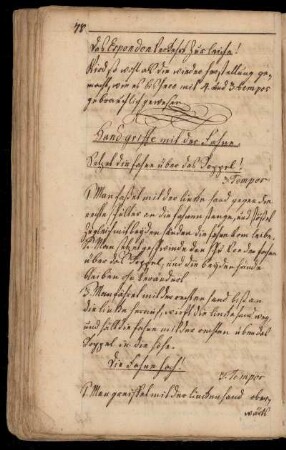 78
das Esponton verkehrt zur Leiche!
Wird so wohl als die wieder herstellung ge-
macht, wie es bishero mit 4. und 3. tempos
gebräuchlich gewesen
Handgriffe mit der Fahne
Setzet die Fahne über das Koppel!
3. Tempos
1. Man fasset mit der linken hand gegen der
rechten schulter an die Fahnen stange, und
zugleich mit beyden händen die Fahne vom leibe.
2. Man setzet geschwinde den Fahne
über das Koppel, und die beyden hände
bleiben ohnverändert
3. Man fähret mit der rechten hand bis an
die linke herauf, wirft die linke hand weg
und hält die Fahne mit der rechten über das
Koppel in die höhe.
Die Fahne hoch!
3. Tempos
1. Man greiffet mit der lincken hand ober-
wärts